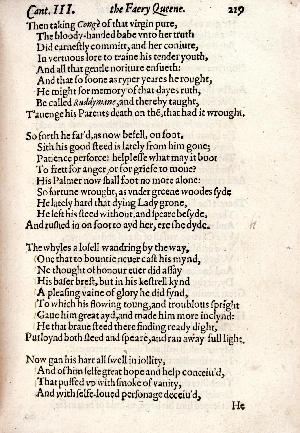 Cant. III. the Faery Queene. 219
Then taking Congè of that virgin pure,
The bloody-handed babe vnto her truth
Did earnestly committ, and her coniure,
In vertuous lore to traine his tender youth,
And all that gentle noriture ensueth:
And that so soone as ryper yeares he rought,
He might for memory of that dayes ruth,
Be called Ruddymane, and thereby taught,
T'auenge his Parents death on thẽ, that had it wrought.
So forth he far'd, as now befell, on foot,
Sith his good steed is lately from him gone;
Patience perforce: helplesse what may it boot
To frett for anger, or for griefe to mone?
His Palmer now shall foot no more alone:
So fortune wrought, as vnder greene woodes syde
He lately hard that dying Lady grone,
He left his steed without, and speare besyde,
And rushed in on foot to ayd her, ere she dyde.
The whyles a losell wandring by the way,
One that to bountie neuer cast his mynd,
Ne thought of honour euer did assay
His baser brest, but in his kestrell kynd
A pleasing vaine of glory he did fynd,
To which his flowing toung, and troublous spright
Gaue him great ayd, and made him more inclynd:
He that braue steed there finding ready dight,
Purloynd both steed and speare, and ran away full light.
Now gan his hart all swell in iollity,
And of him selfe great hope and help conceiu'd,
That puffed vp with smoke of vanity,
And with selfe-loued personage deceiu'd,
He